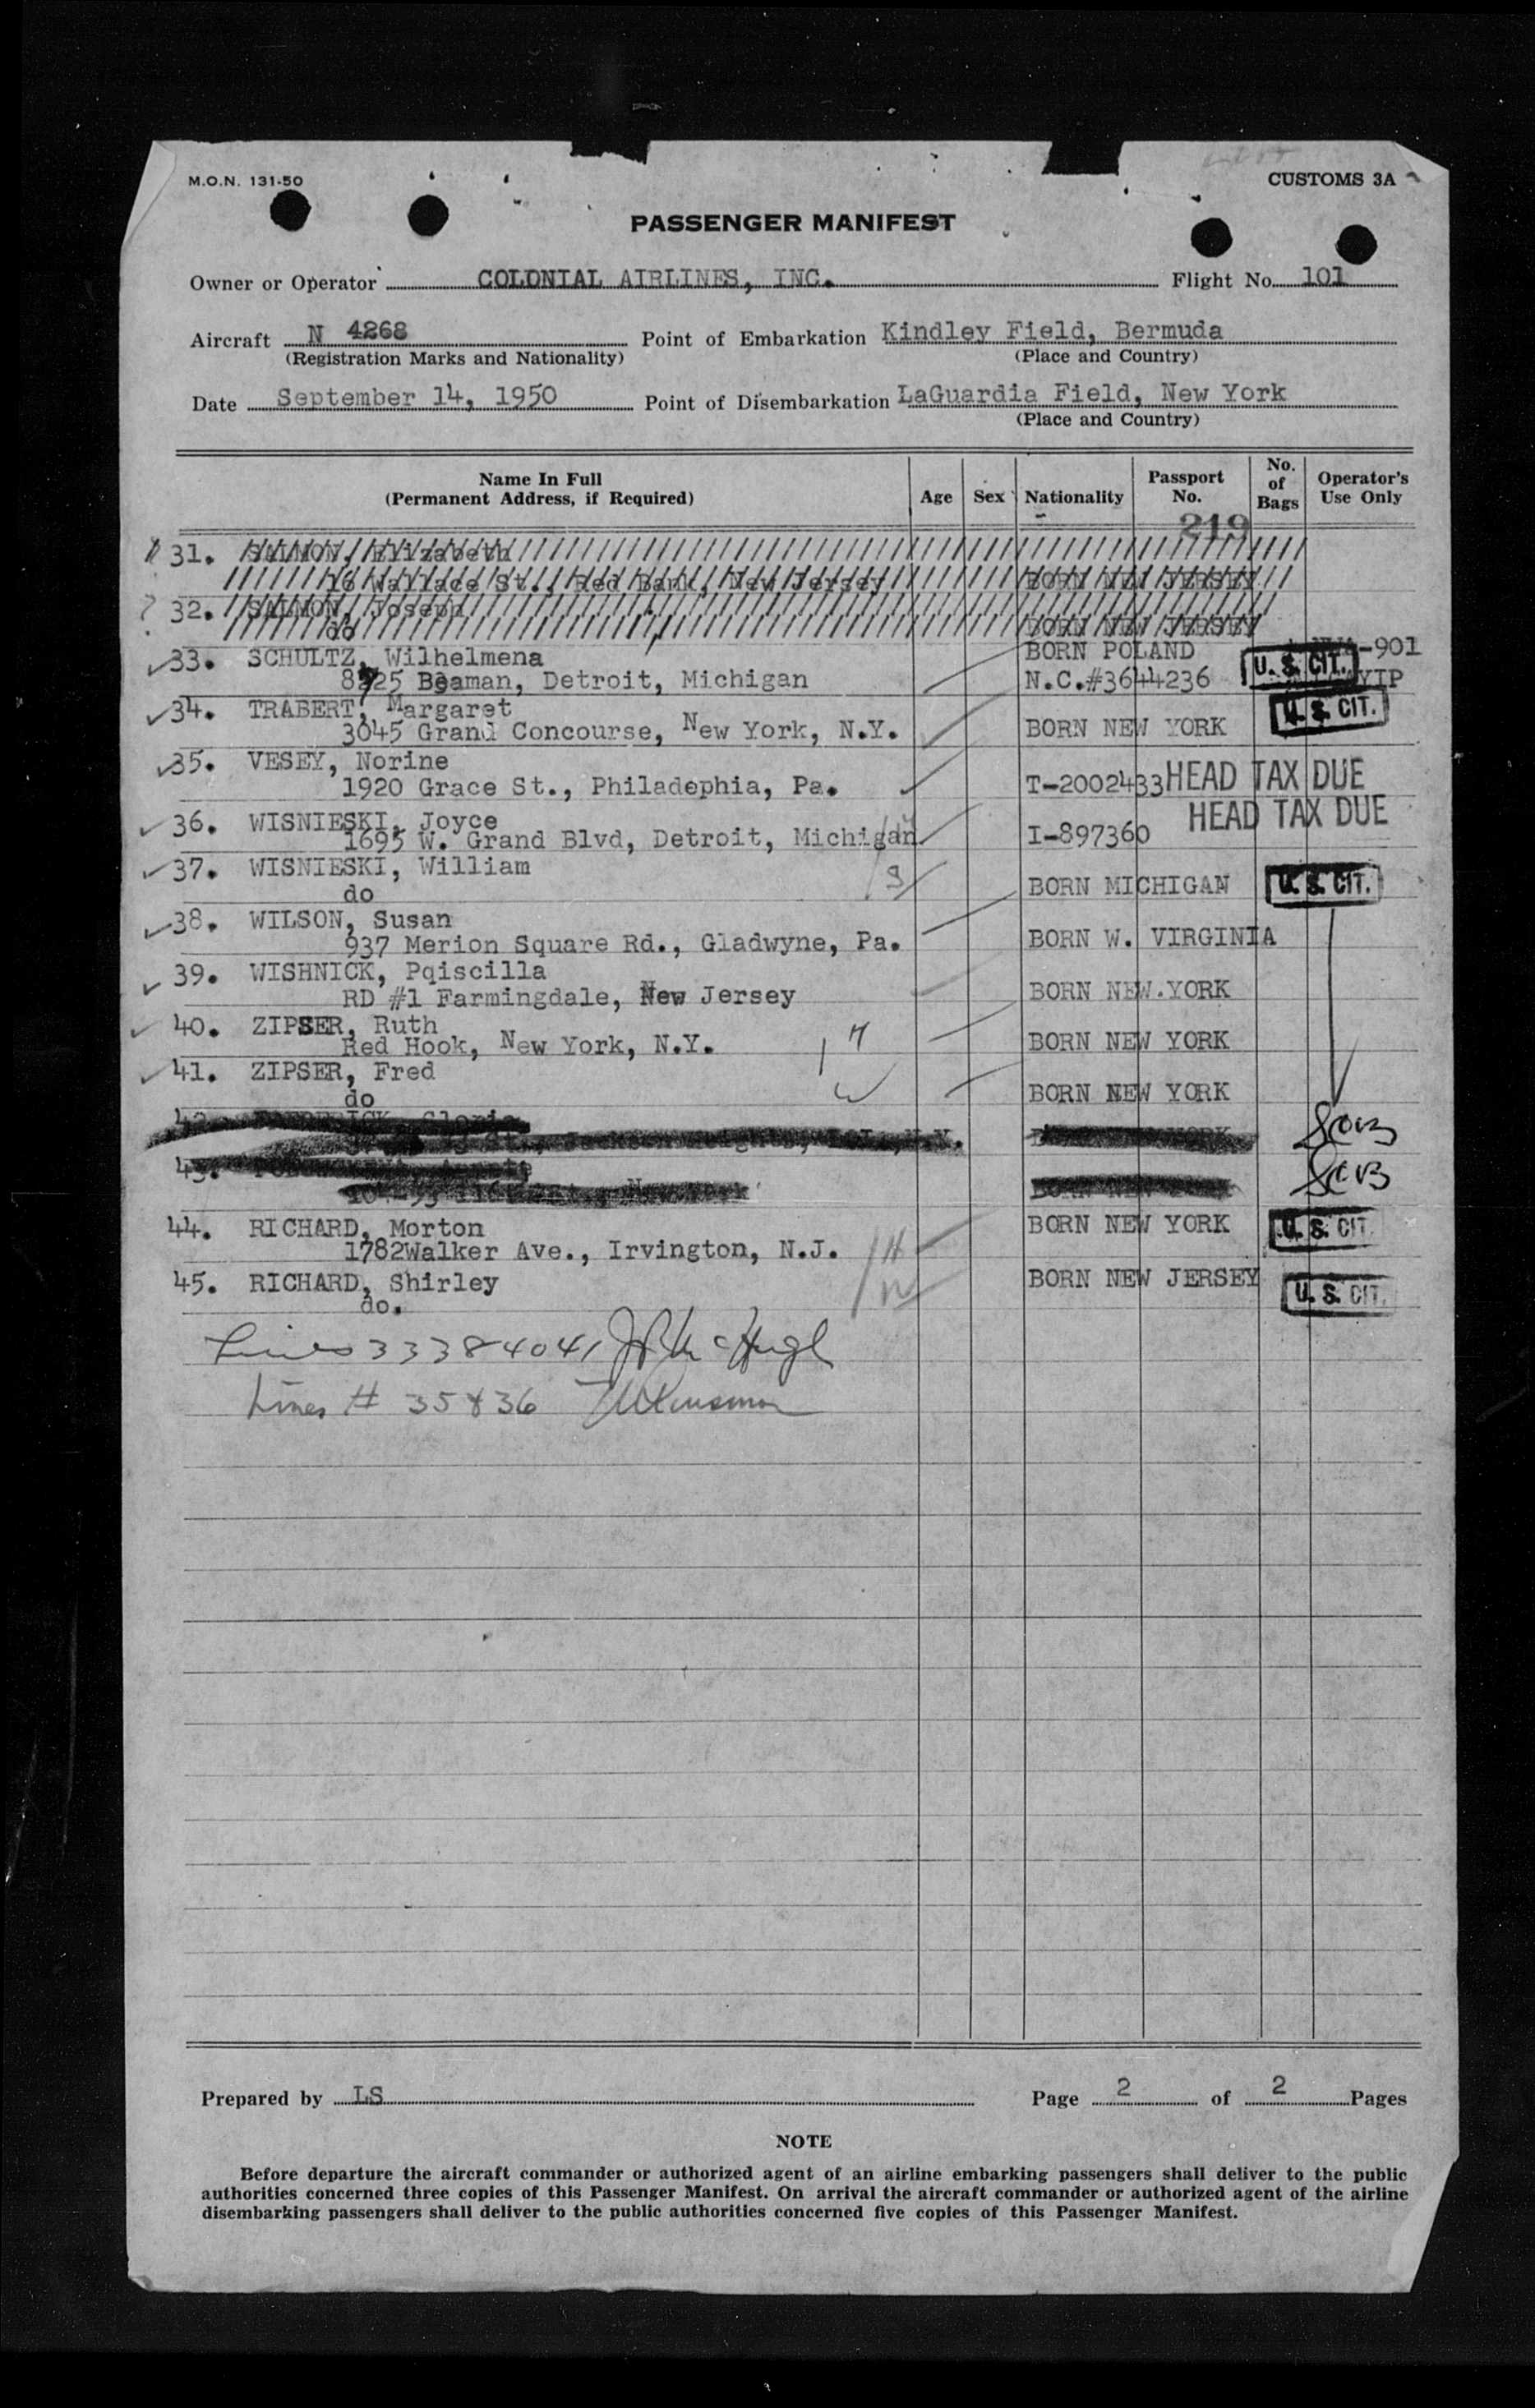 M.O.N. 131-50
CUSTOMS 3A
PASSENGER MANIFEST
Owner or Operator COLONIAL AIRLINES, INC. Flight No. 101
Aircraft N 4268 Point of Embarkation Kindley Field, Bermuda
(Registration Marks and Nationality) (Place and Country)
Date September 14, 1950 Point of Disembarkation LaGuardia Field, New York
(Place and Country)
Name In Full (Permanent Address, if Required) Age Sex Nationality Passport No. No. of Bags Operator's Use Only
219
31. SALMON, Elizabeth
16 Wallace St., Red Bank, New Jersey BORN NEW JERSEY
32. SALMON, Joseph
do BORN NEW JERSEY
33. SCHULTZ, Wilhelmena BORN POLAND -901
8725 Beaman, Detroit, Michigan N.C.#3644236 U. S. CIT. VIP
34. TRABERT, Margaret
3045 Grand Concourse, New York, N.Y. BORN NEW YORK U. S. CIT.
35. VESEY, Norine
1920 Grace St., Philadephia, Pa. T-2002433 HEAD TAX DUE
36. WISNIESKI, Joyce
1695 W. Grand Blvd, Detroit, Michigan I-897360 HEAD TAX DUE
37. WISNIESKI, William
do BORN MICHIGAN U. S. CIT.
38. WILSON, Susan
937 Merion Square Rd., Gladwyne, Pa. BORN W. VIRGINIA
39. WISHNICK, Pqiscilla
RD #1 Farmingdale, New Jersey BORN NEW.YORK
40. ZIPSER, Ruth
Red Hook, New York, N.Y. BORN NEW YORK
41. ZIPSER, Fred
do BORN NEW YORK
42. Gloria
Jackson Heights, L.I., N.Y.
43.
44. RICHARD, Morton BORN NEW YORK U. S. CIT
1782Walker Ave., Irvington, N.J. H
45. RICHARD, Shirley BORN NEW JERSEY
do. W U. S. CIT.
Lines 33 38 40 41 J McHugh
Lines # 35 & 36
Prepared by LS Page 2 of 2 Pages
NOTE
Before departure the aircraft commander or authorized agent of an airline embarking passengers shall deliver to the public
authorities concerned three copies of this Passenger Manifest. On arrival the aircraft commander or authorized agent of the airline
disembarking passengers shall deliver to the public authorities concerned five copies of this Passenger Manifest.